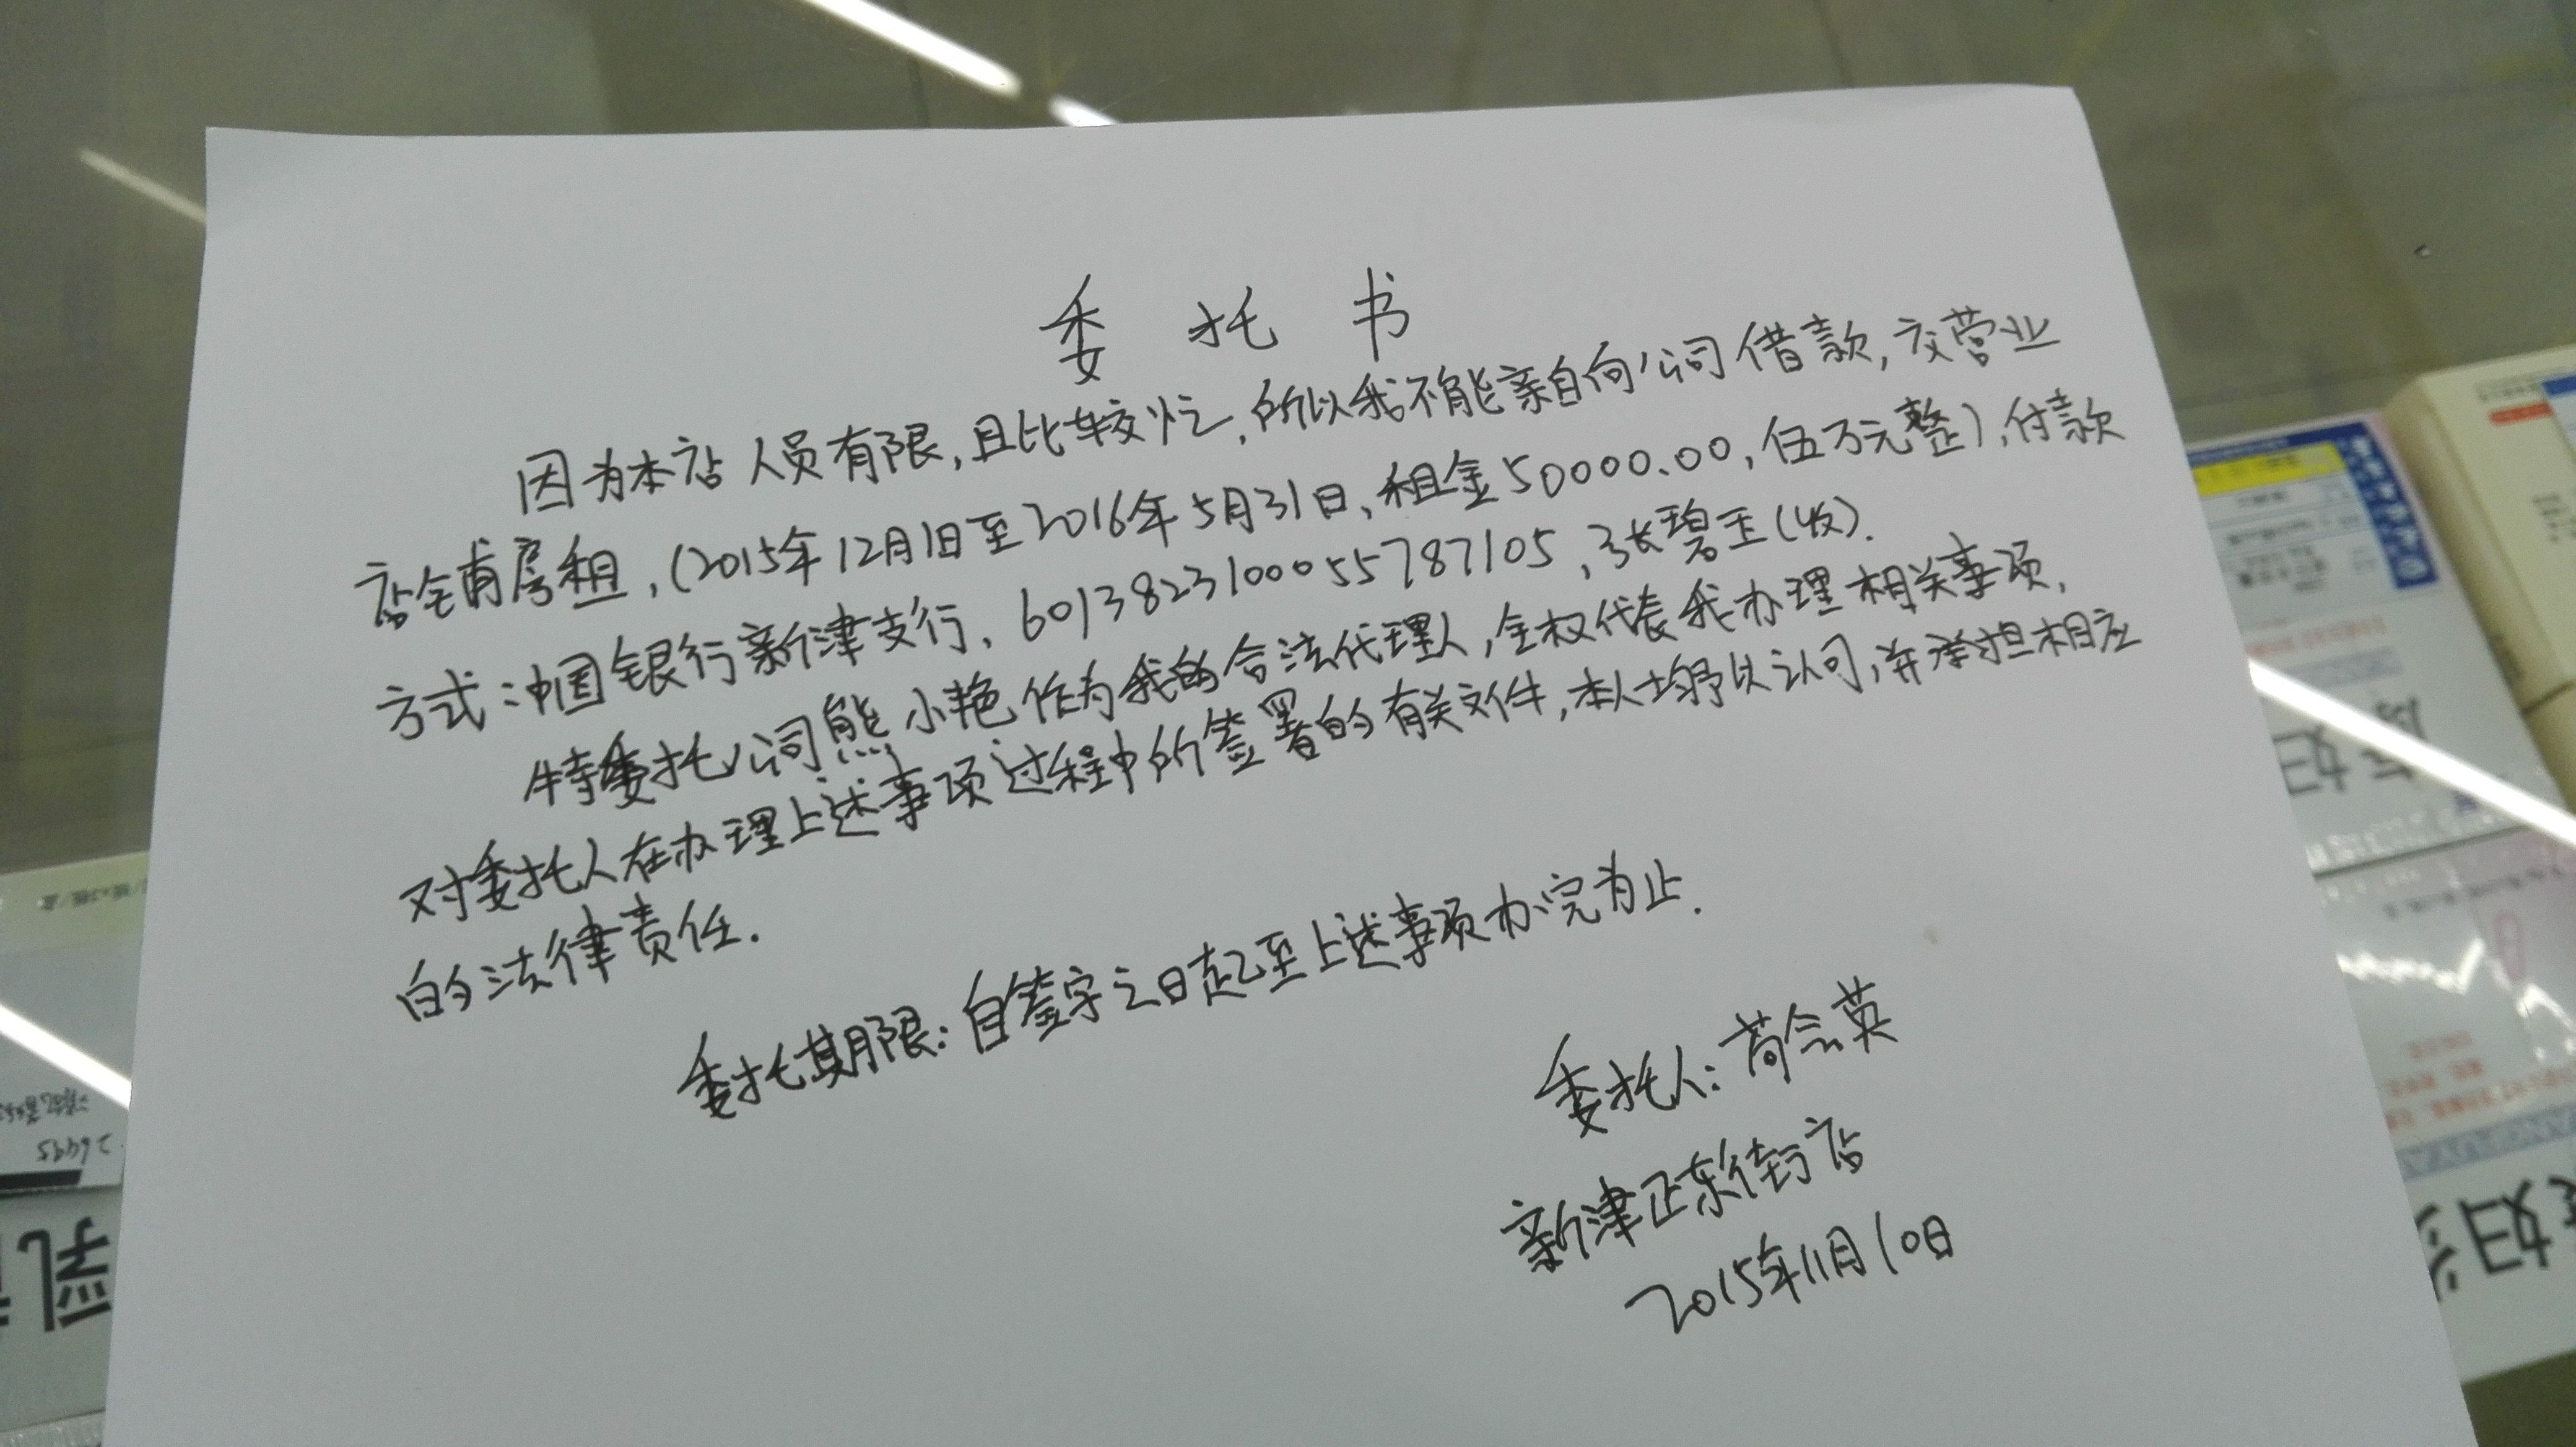 委托书
因为本店人员有限,且比较忙,所以我不能亲自向公司借款,交营业
店铺房租,(2015年12月1日至2016年5月31日,租金50000.00,伍万元整),付款
方式:中国银行新津支行,6013823100055787105,张碧玉(收).
特委托公司熊小艳作为我的合法代理人,全权代表我办理相关事项,
对委托人在办理上述事项过程中所签署的有关文件,本人均予以认可,并承担相应
的法律责任.
委托期限:自签字之日起至上述事项办完为止.
委托人:苟念英
新津正东街店
2015年11月10日